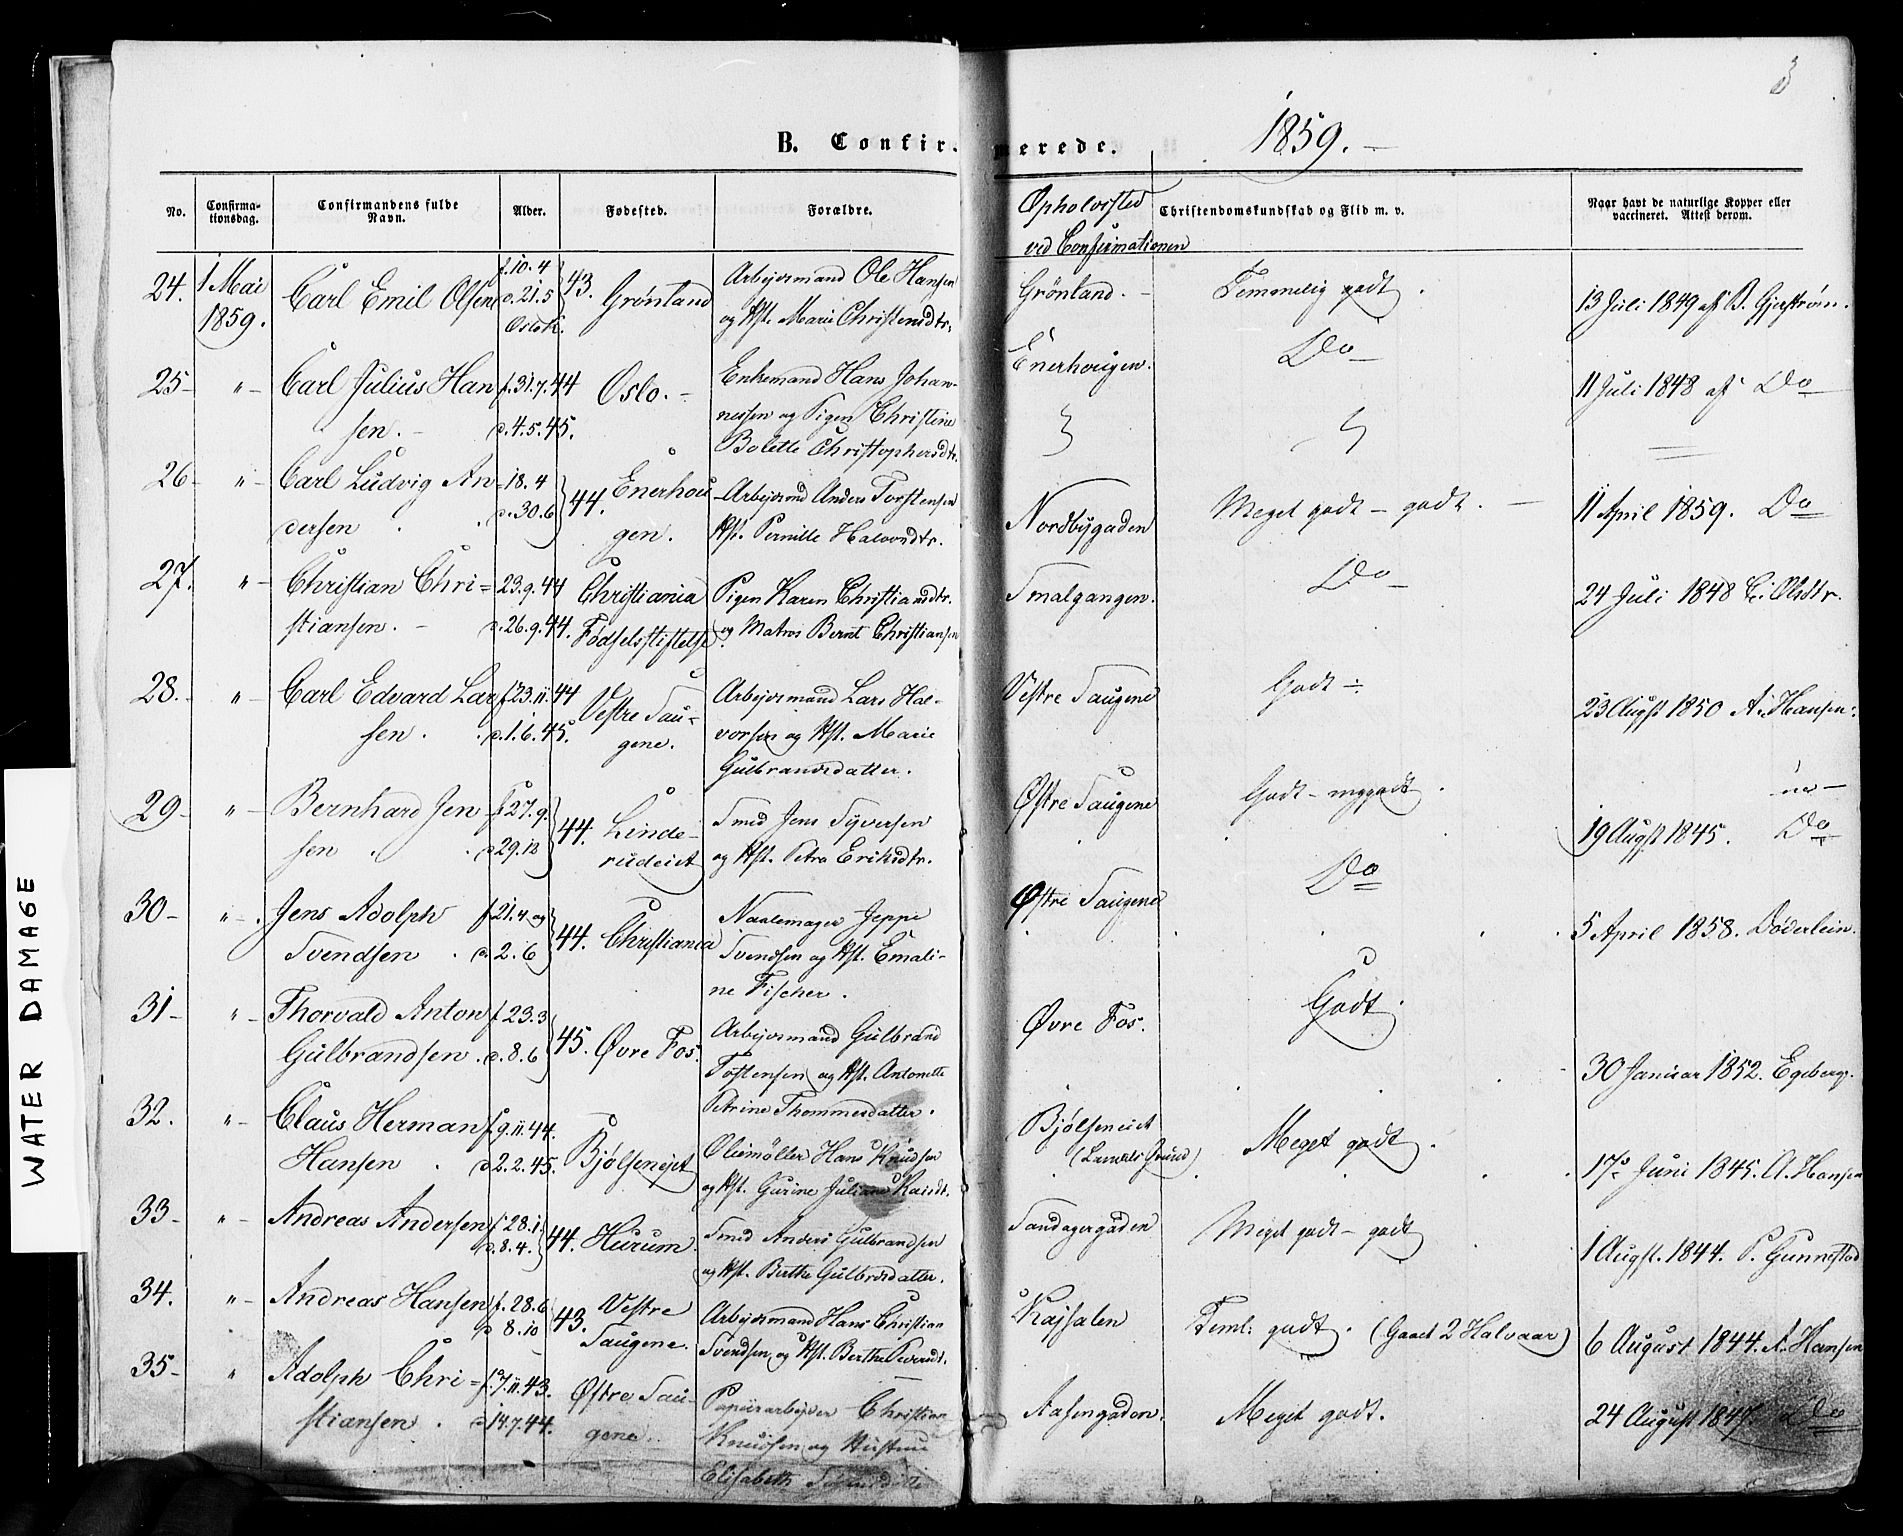 3
B. Confirmerede. 1859. –
No. Confirmationsdag. Confirmandens fulde Navn. Alder. Fødested. Forældre. Opholdssted ved Confirmationen Christendomskundskab og Flid m. v. Naar havt de naturlige Kopper eller vaccineret. Attest derom.
24. 1 Mai Carl Emil Olsen f. 10.4 43. Grønland Arbeidsmand Ole Hansen Grönland. – Temmelig godt. 13 Juli 1849 af B. Gjestrøm.
1859. d. 21.5 og Hst. Marie Christensdtr.
Oslo K.
25 – " – Carl Julius Han f. 31.7.44 Oslo. – Enkemand Hans Johan- Enerhougen. Do – 11 Juli 1848 af Do –
sen. – d. 4.5.45. nessen og Pigen Christine
Bolette Christophersdtr.
26 – " – Carl Ludvig An = 18.4 44. Enerhou Arbeidsmd Anders Torstensen Nordbygaden Meget godt – godt. – 11 April 1859. Do
dersen . d. 30.6 gen. Hst. Pernille Halvorsdtr.
27. " – Christian Chri = 23.9.44 Christiania Pigen Karen Christiansdtr. Smalgangen. Do – 24 Juli 1848 Olsdtr.
stiansen. – d. 26.9.44. Fødselsstiftelse og Matros Bernt Christiansen
28. – " – Carl Edvard Lar f. 23.11.44 Vestre Sau- Arbeidsmand Lars Hal- Vestre Saugene Godt 23 Augst 1850 A. Hansen.
sen. d. 1.6.45. gene. vorsen og Hst. Marie
Gulbrandsdatter.
29 – " – Bernhard Jen f. 27.9. 44. Linde- Smed Jens Syversen Østre Saugene Godt – mg godt. 19 Augst 1845. Do
sen . d. 29.12 rudeiet og Hst. Petra Eriksdtr.
30 – " – Jens Adolph f. 21.4 og 44. Christiania Naalemager Jeppe Østre Saugene Do 5 April 1858. Döderlein.
Svendsen . d. 2.6 Svendsen og Hst. Emali-
ne Fischer.
31 – " – Thorvald Anton f. 23.3 45. Øvre Fos. Arbeidsmand Gulbrand Øvre Fos. Godt. 30 Januar 1852. Egeberg.
Gulbrandsen. d. 8.6 Tostensen og Hst. Antonette
Petrine Thommesdatter.
32. " – Claus Herman f. 9.11.44. Bjølseneiet Oliemöller Hans Knudsen Bjølseneiet Meget godt. 17de Juni 1845. A. Hansen
Hansen . d. 2.2.45. og Hst. Gurine Juliane
33 – " – Andreas Andersen f. 28.1. 44. Hurum. Smed Anders Gulbrandsen Sandagergaden Meget godt – godt 1 Augst. 1844. P. Gunnestad
d. 8.4. og Hst. Berthe Gulbrdsdatter.
34. " – Andreas Hansen f. 28.6 43. Vestre Arbeidsmand Hans Christian Kajsalen Teml: godt. (Gaaet 2 Halvaar) 6 August 1844. A. Hansen
d 8.10 Saugene. Svendsen og Hst. Berthe
35 – " Adolph Chri = f. 7.11.43. Østre Sau- Papiirarbeider Christian Aasengaden. Meget godt. 24 August Do
stiansen . d. 14.7.44. gene. Knudsen og Hustrue
Elisabeth
WATER DAMAGE